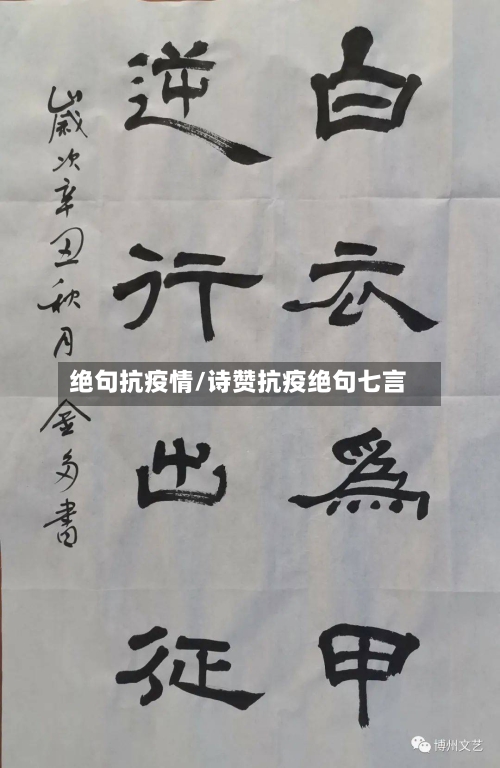 白衣爲甲
逆行出征
歲次辛丑秋月
金多書
绝句抗疫情/诗赞抗疫绝句七言
博州文艺